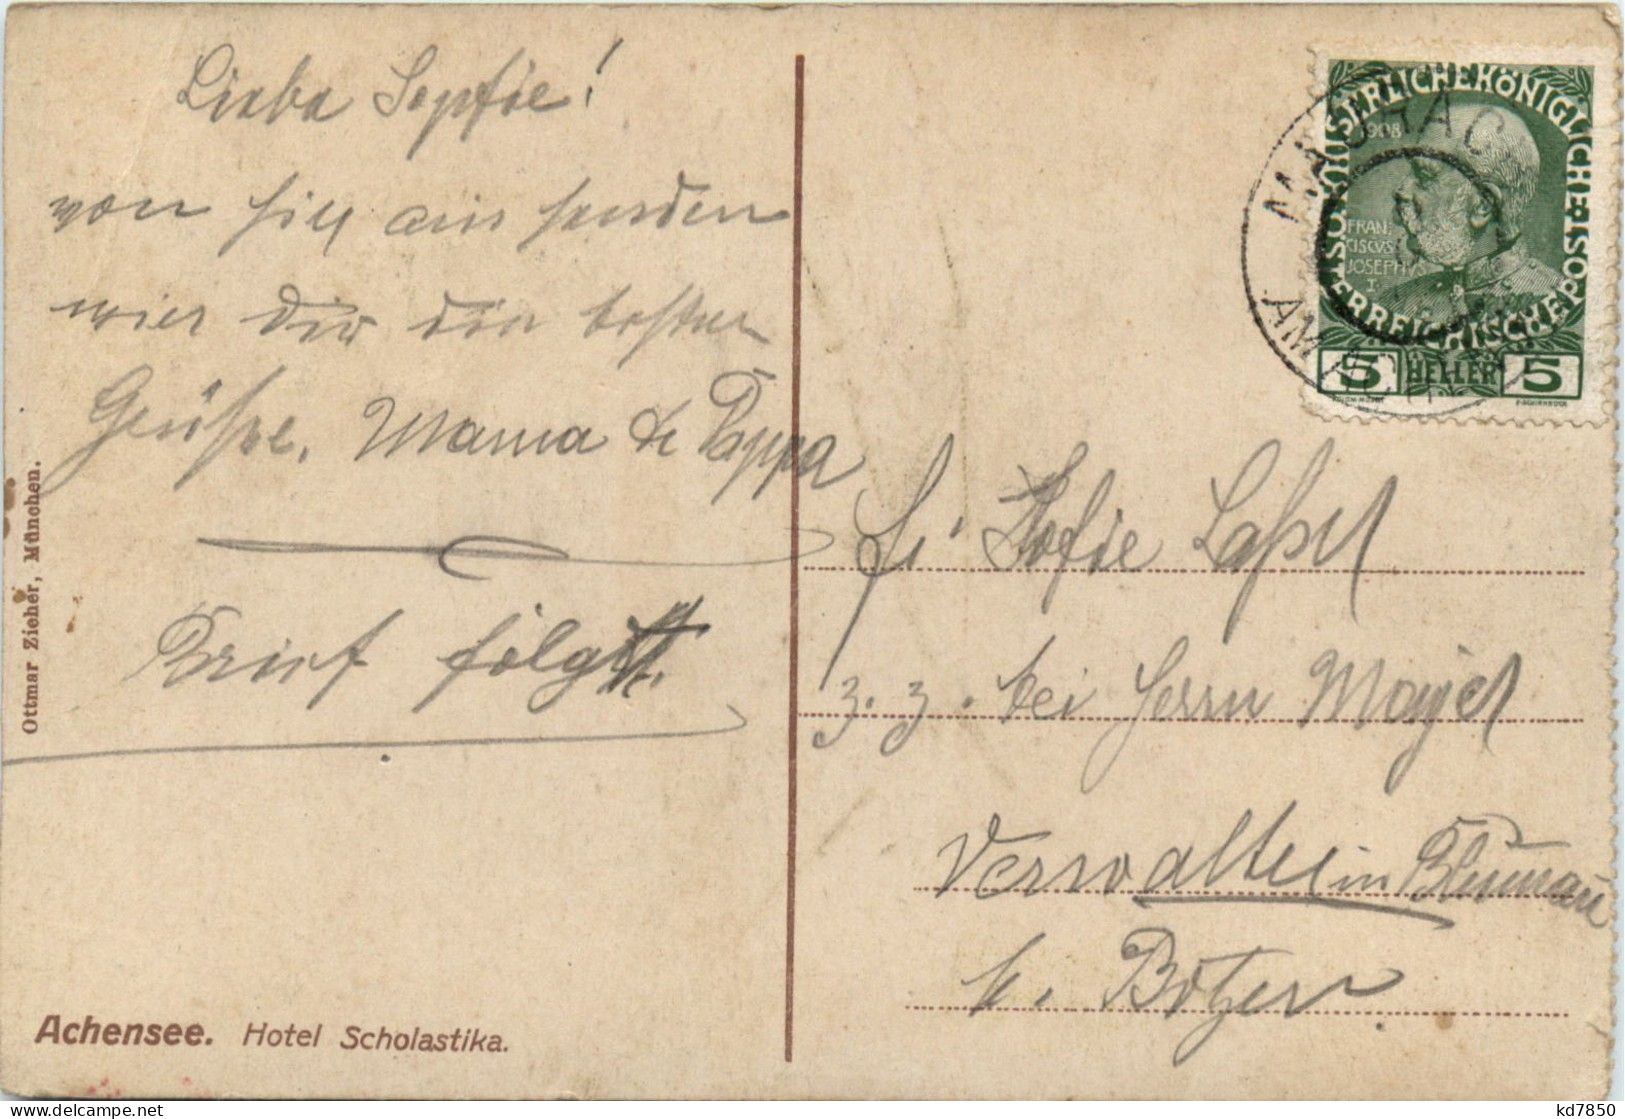 Liebe Sopfie!
von hier aus senden
wier dir die besten
Grüße. Mama & Pappa
Brief folgt.
Ottmar Zieher, München.
Achensee. Hotel Scholastika.
KAISERLICHE KÖNIGLICHE ÖSTERREICHISCHE POST
1908
FRAN
CISCVS
JOSEPHVS
I
5 HELLER 5
MAURAC
AM ACHEN
Fr. Sofie
z. z. bei Herrn Mayer
Verwalter in Blumau
b. Botzen
kd7850